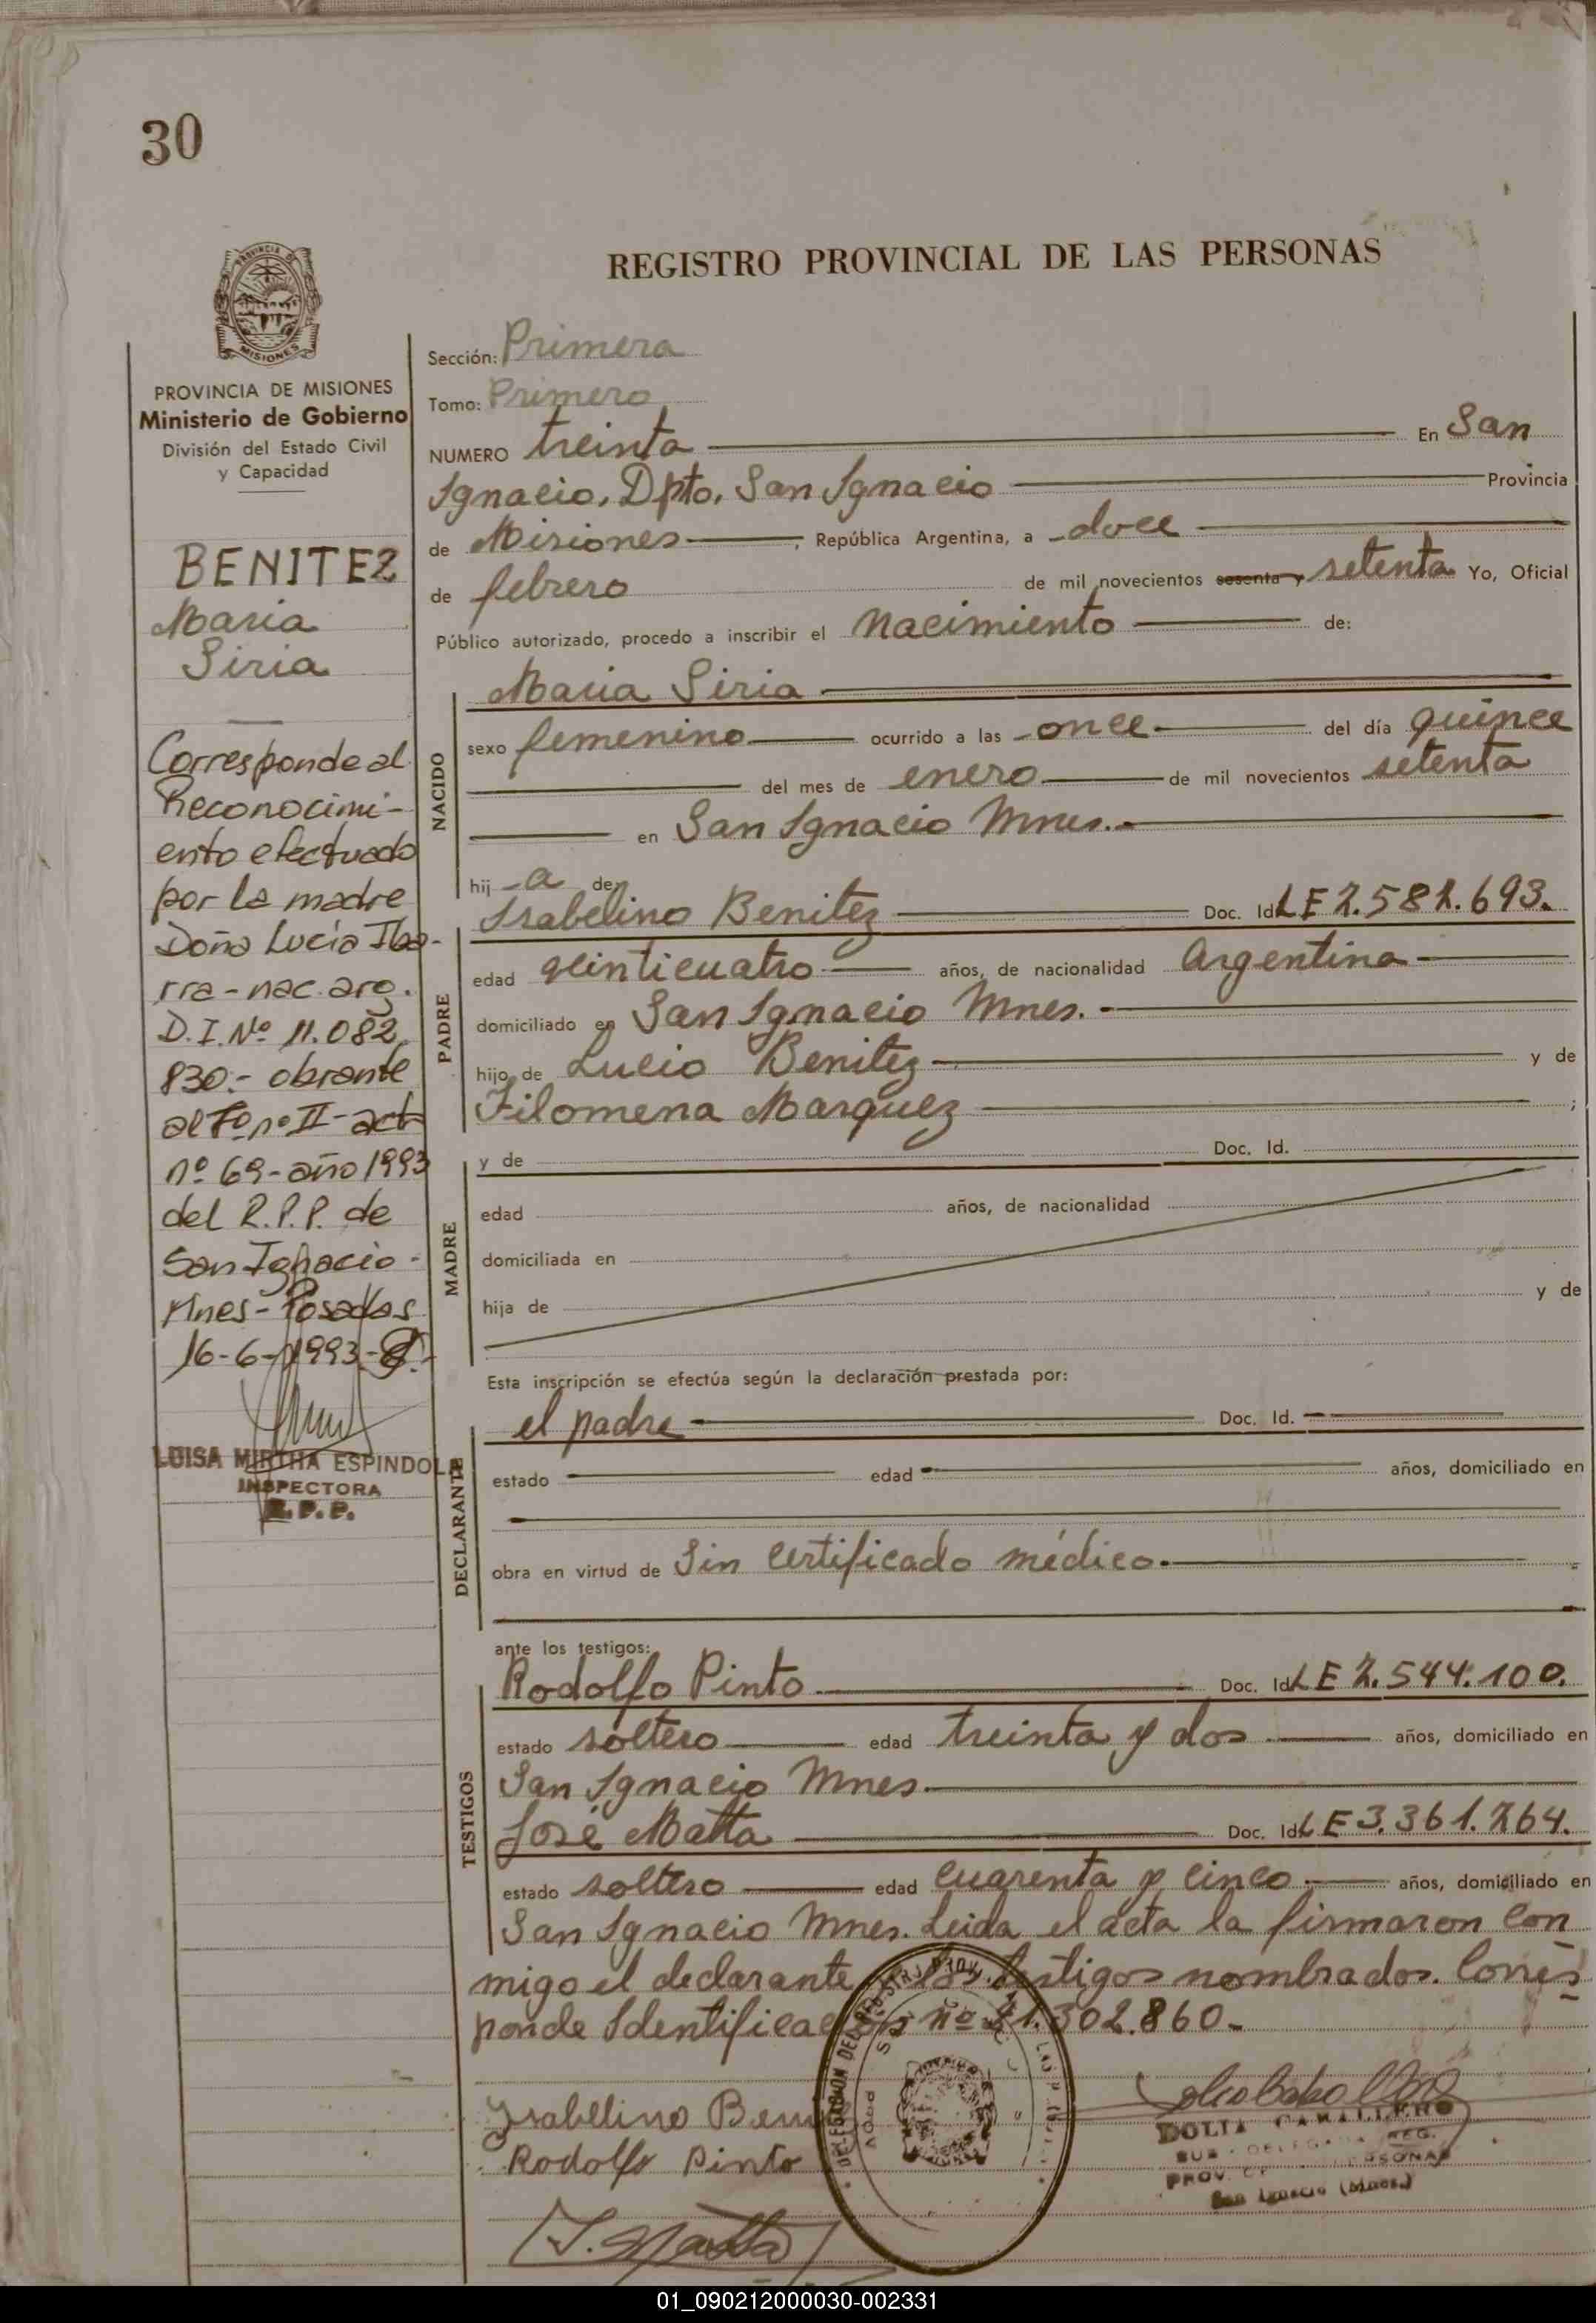 30
REGISTRO PROVINCIAL DE LAS PERSONAS
PROVINCIA DE MISIONES
Ministerio de Gobierno
División del Estado Civil
y Capacidad
BENITEZ
Maria
Siria
Corresponde al
Reconocimi-
ento efectuado
por la madre
Doña Lucía Iba-
rra - nac. arg.
D.I. Nº 11.082.
830.- obrante
al Tº nº II - acta
nº 69 - año 1993
del R.P.P. de
San Ignacio -
Mnes - Posadas
16-6-1993-
LUISA MIRTHA ESPINDOLA
INSPECTORA
R.P.P.
Sección: Primera
Tomo: Primero
NUMERO treinta En San
Ignacio, Dpto. San Ignacio Provincia
de Misiones, República Argentina, a doce
de febrero de mil novecientos sesenta y setenta Yo, Oficial
Público autorizado, procedo a inscribir el nacimiento de:
NACIDO
Maria Siria
sexo femenino ocurrido a las once del día quince
del mes de enero de mil novecientos setenta
en San Ignacio Mnes.
hij a de
PADRE
Isabelino Benitez Doc. Id. LE 7.582.693.
edad veinticuatro años, de nacionalidad Argentina
domiciliado en San Ignacio Mnes.
hijo de Lucio Benitez y de
Filomena Marquez ;
MADRE
y de Doc. Id.
edad años, de nacionalidad
domiciliada en
hija de y de
Esta inscripción se efectúa según la declaración prestada por:
DECLARANTE
el padre Doc. Id.
estado edad años, domiciliado en
obra en virtud de Sin certificado médico.
ante los testigos:
TESTIGOS
Rodolfo Pinto Doc. Id. LE 7.544.100.
estado soltero edad treinta y dos años, domiciliado en
San Ignacio Mnes.
José Matta Doc. Id. LE 3.361.764.
estado soltero edad cuarenta y cinco años, domiciliado en
San Ignacio Mnes. Leida el acta la firmaron con
migo el declarante y los testigos nombrados. Corres
ponde Identificación nº 21.302.860.
Isabelino Beni
Rodolfo Pinto
J. Matta
DELEGACION DEL REGISTRO PROV.
CABALLERO
SUB-DELEGADA REG.
PROV. PERSONAS
San Ignacio (Mnes.)
01_090212000030-002331